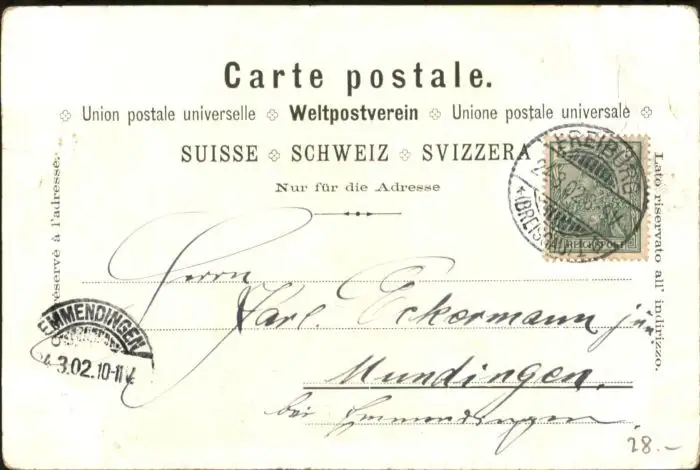 Carte postale.
Union postale universelle Weltpostverein Unione postale universale
SUISSE SCHWEIZ SVIZZERA
Nur für die Adresse
réservé à l'adresse.
Lato riservato all' indirizzo.
FREIBURG
(BREISGAU)
REICHSPOST
Herrn
Karl Eckermann jun
Mundingen.
bei Emmendingen
EMMENDINGEN
3.02.10-11
28.-